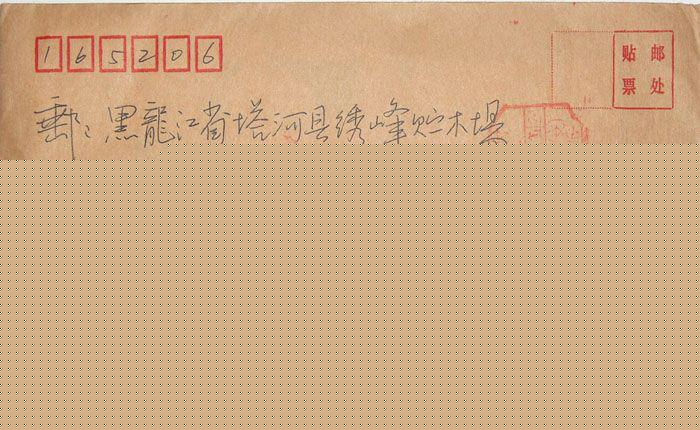 165206
贴邮
票处
郵：黑龍江省塔河县绣峰贮木場